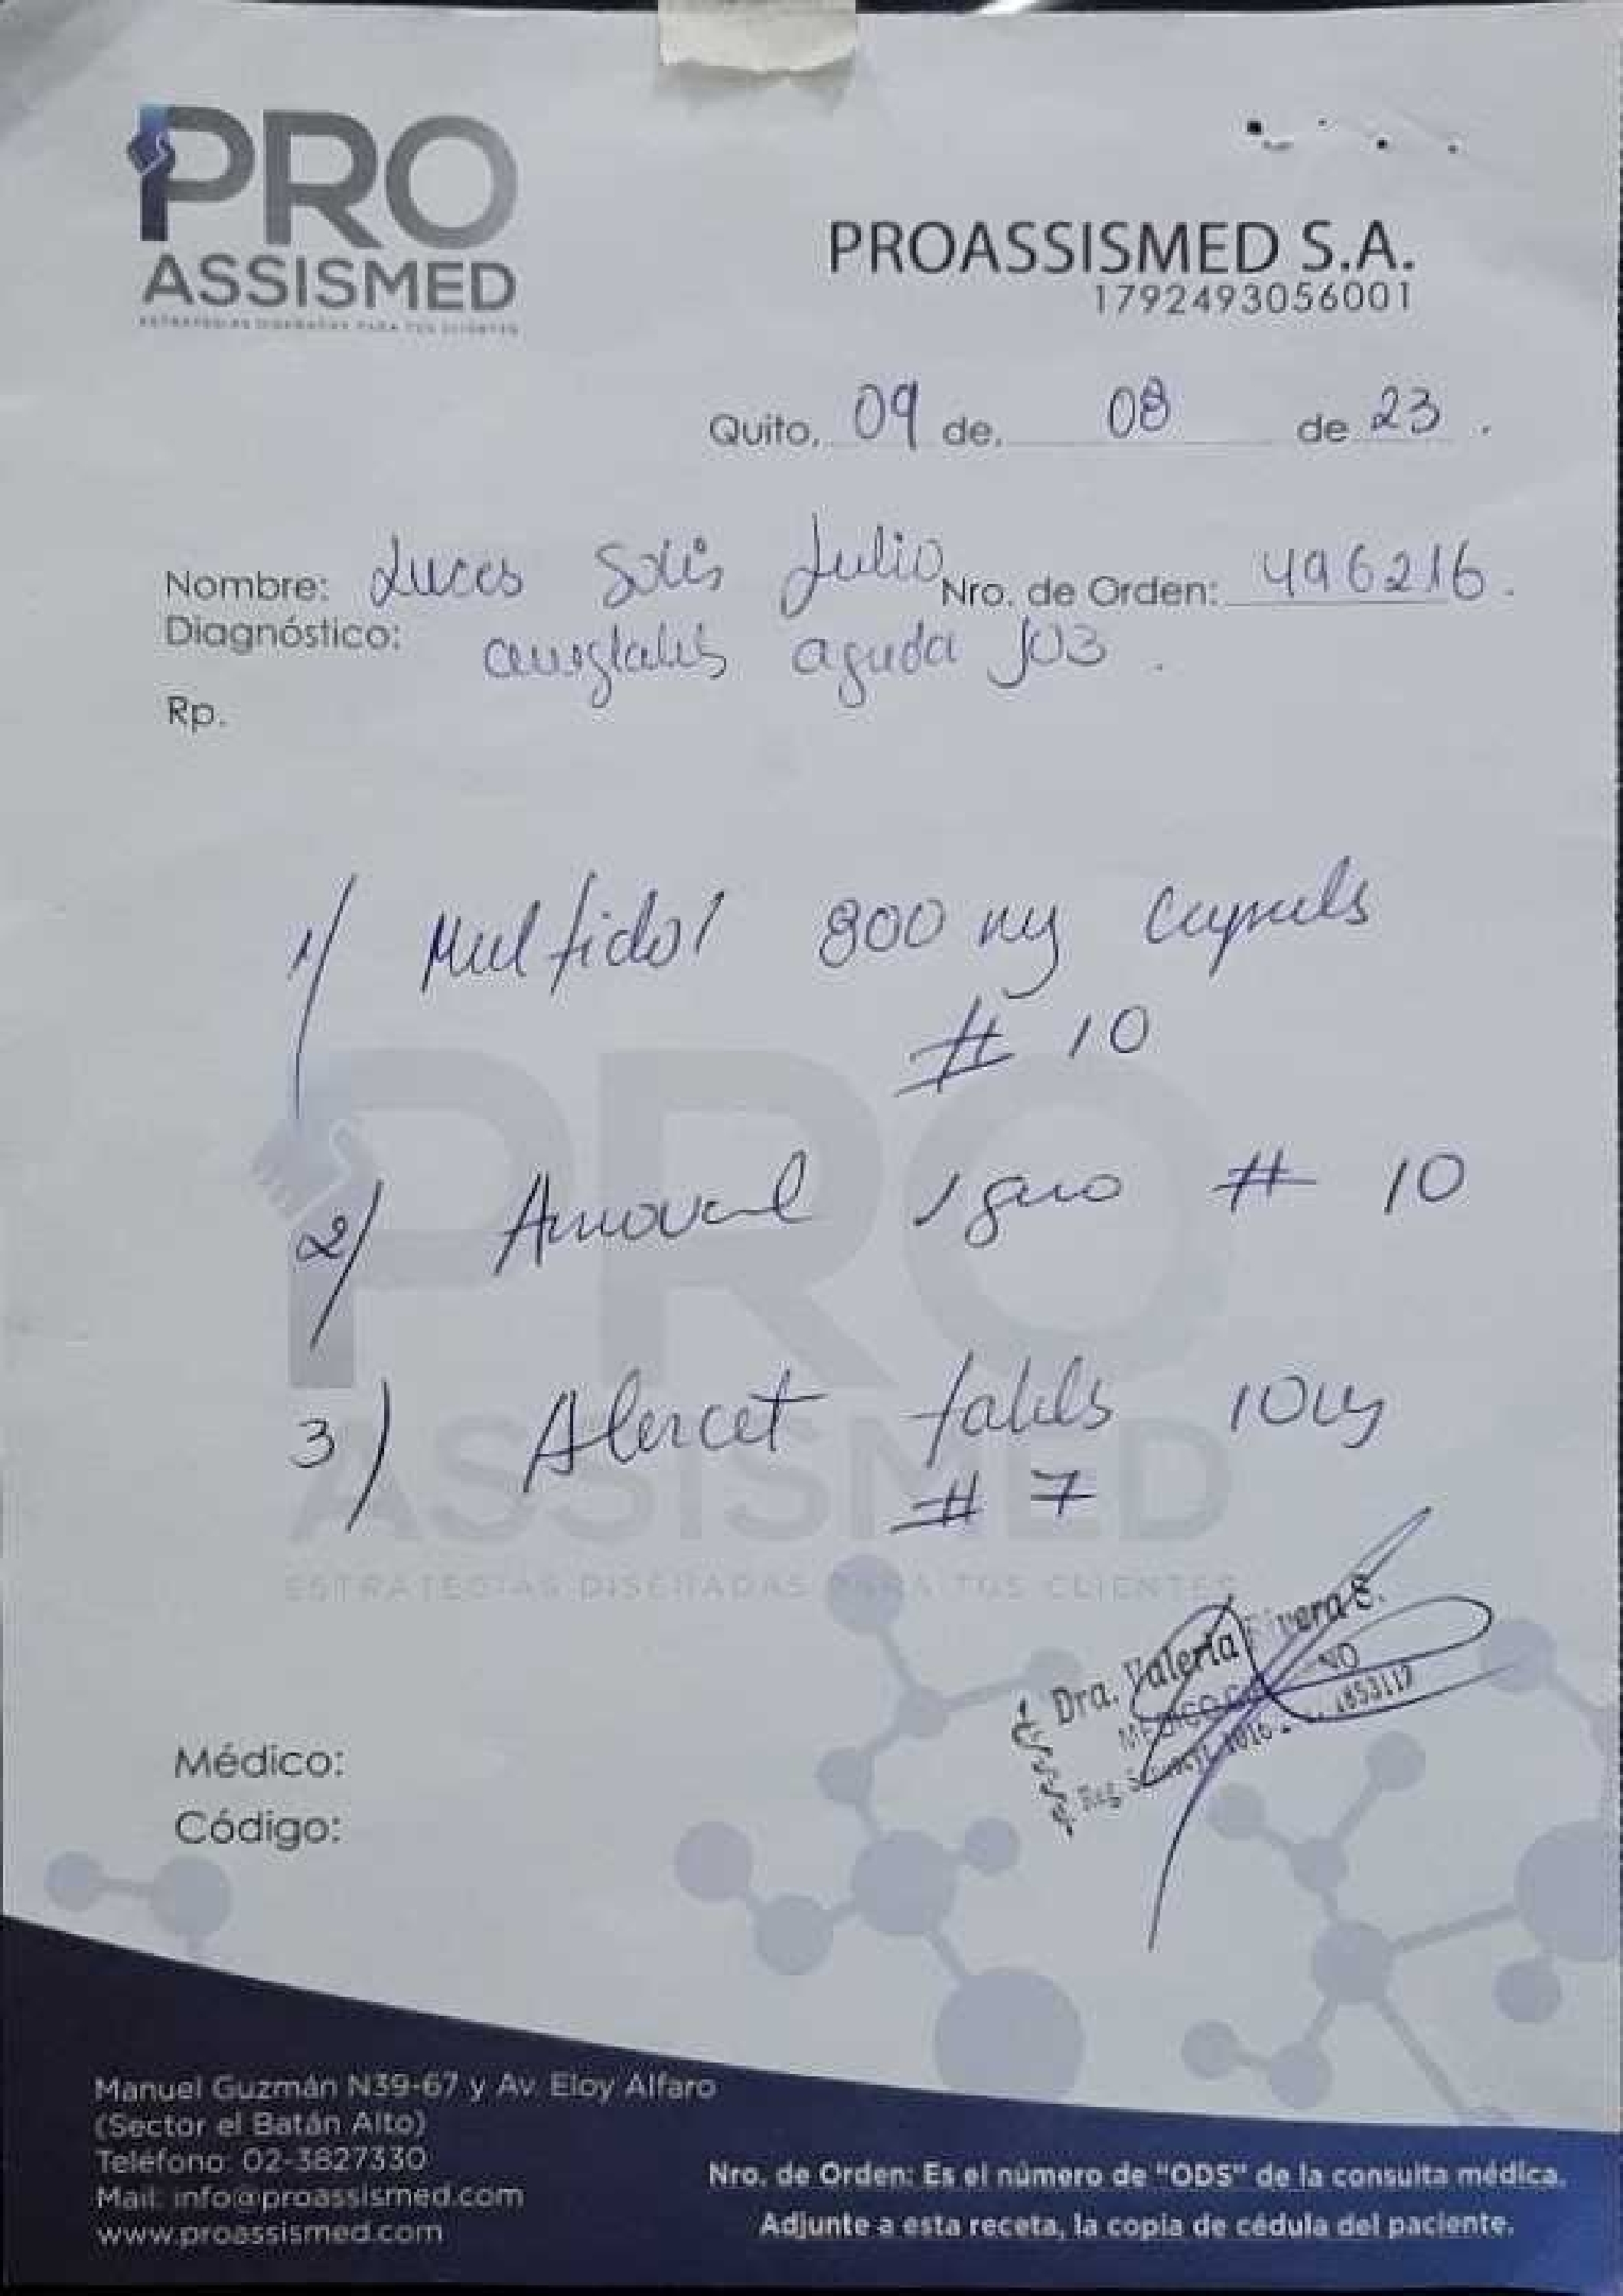 PRO
ASSISMED
ESTRATEGIAS DISEÑADAS PARA TUS CLIENTES
PROASSISMED S.A.
1792493056001
Quito, 09 de, 08 de 23.
Nombre: Lucas Solis Julio Nro. de Orden: 496216.
Diagnóstico: aguda J03.
Rp.
1/ Multidol 800 mg
# 10
2/ Amoval 1 # 10
3) Alercet 10
# 7
PRO
ASSISMED
ESTRATEGIAS DISEÑADAS PARA TUS CLIENTES
Dra. Valeria Rivera S.
MEDICO
Médico:
Código:
Manuel Guzmán N39-67 y Av. Eloy Alfaro
(Sector el Batán Alto)
Teléfono: 02-3827330
Mail: info@proassismed.com
www.proassismed.com
Nro. de Orden: Es el número de "ODS" de la consulta médica.
Adjunte a esta receta, la copia de cédula del paciente.